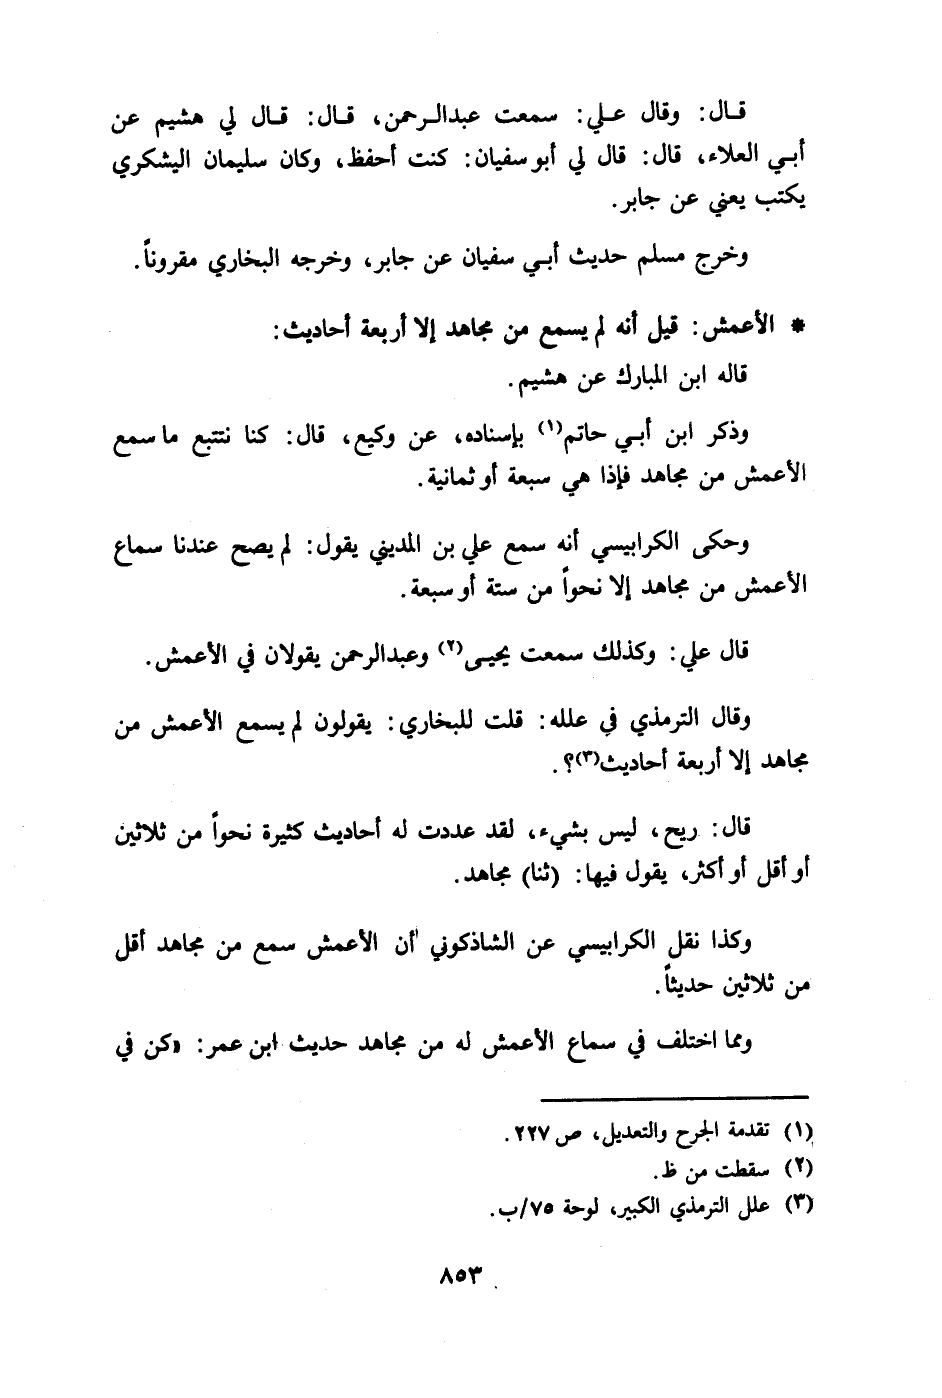 قـال: وقال عـلي: سمعت عبدالـرحمن، قـال: قـال لي هشيم عن
أبـي العلاء، قال: قال لي أبو سفيان: كنت أحفظ، وكان سليمان اليشكري
يكتب يعني عن جابر.
وخرج مسلم حديث أبـي سفيان عن جابر، وخرجه البخاري مقروناً.
* الأعمش: قيل أنه لم يسمع من مجاهد إلا أربعة أحاديث:
قاله ابن المبارك عن هشيم.
وذكر ابن أبـي حاتم(١) بإسناده، عن وكيع، قال: كنا نتتبع ما سمع
الأعمش من مجاهد فإذا هي سبعة أو ثمانية.
وحكى الكرابيسي أنه سمع علي بن المديني يقول: لم يصح عندنا سماع
الأعمش من مجاهد إلا نحواً من ستة أو سبعة.
قال علي: وكذلك سمعت يحيـى(٢) وعبدالرحمن يقولان في الأعمش.
وقال الترمذي في علله: قلت للبخاري: يقولون لم يسمع الأعمش من
مجاهد إلا أربعة أحاديث(٣)؟.
قال: ريح، ليس بشيء، لقد عددت له أحاديث كثيرة نحواً من ثلاثين
أو أقل أو أكثر، يقول فيها: (ثنا) مجاهد.
وكذا نقل الكرابيسي عن الشاذكوني أن الأعمش سمع من مجاهد أقل
من ثلاثين حديثاً.
ومما اختلف في سماع الأعمش له من مجاهد حديث ابن عمر: «كن في
(١) تقدمة الجرح والتعديل، ص ٢٢٧.
(٢) سقطت من ظ.
(٣) علل الترمذي الكبير، لوحة ٧٥/ب.
٨٥٣